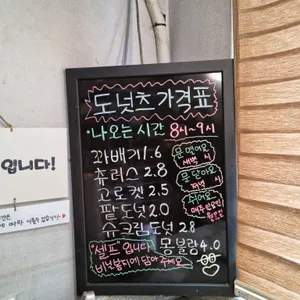 도넛츠 가격표
•나오는 시간 8시~9시
꽈배기 1.6
츄러스 2.8
고로켓 2.5
팥도넛 2.0
슈크림도넛 2.8
몽블랑 4.0
"셀프" 입니다
비닐봉지에 담아 주세요
문 열어요
새벽 시
문 닫아요
저녁 시
쉬어요
매주 일요일
월요일
입니다!